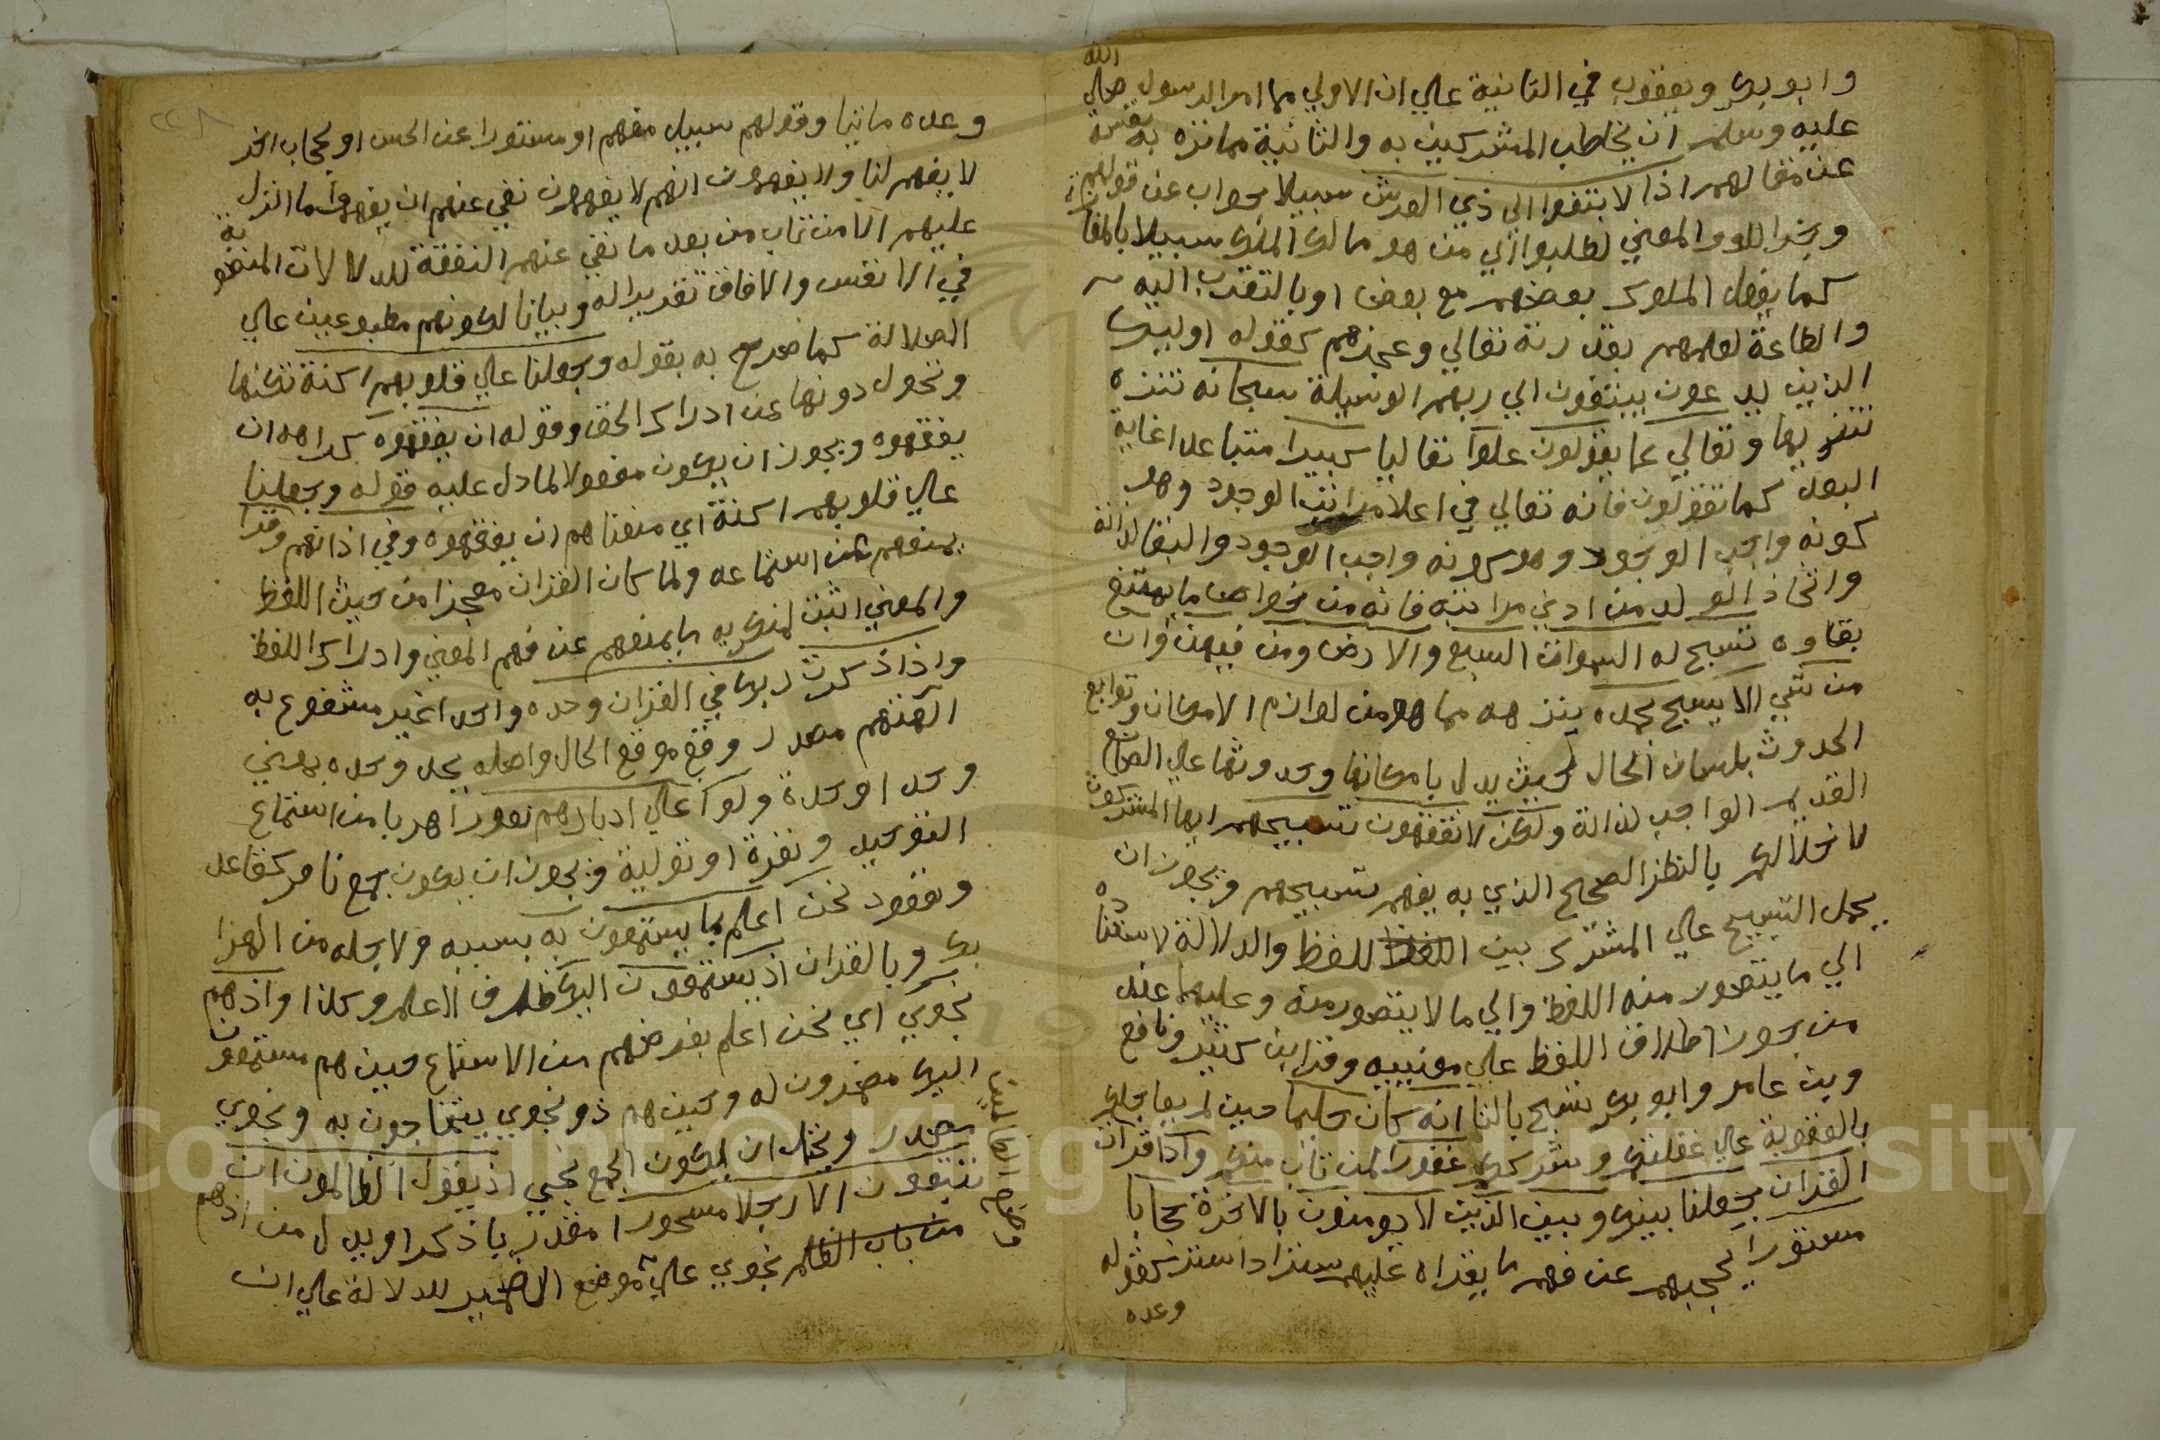 الله
وابو بكر ويعقوب في الثانية علي ان الاولي مما امر الرسول صلي
عليه وسلم ان يخاطب المشركين به والثانية مما نزه به نفسه
عن مقالهم اذا لابتغوا الي ذي العرش سبيلا جواب عن قولهم
وجزا للو والمعني لطلبوا الي من هو مالك الملك سبيلا بالمعا
كما يفعل الملوك بعضهم مع بعض او بالتقرب اليه
والطاعة لعلمهم بقدرته تعالي وعجزهم كقوله اوليك
الذين يدعون يبتغون الي ربهم الوسيلة سبحانه تنزه
تنزيها وتعالي عما يقولون علوا تعاليا كبيرا متباعدا غاية
البعد كما تقولون فانه تعالي في اعلا مراتب الوجود وهو
كونه واجب الوجود وهو كونه واجب الوجود والبقا لذاته
واتخاذ الولد من ادني مراتبه فانه من خواص ما يمتنع
بقاوه تسبح له السموات السبع والارض ومن فيهن وان
من شي الا يسبح بحمده ينزهه مما هو من لوازم الامكان وتوابع
الحدوث بلسان الحال بحيث يدل بامكانها وحدوثها علي الصانع
القديم الواجب لذاته ولكن لا تفقهون تسبيحهم ايها المشركون
لاخلالكم بالنظر الصحيح الذي به يفهم تسبيحهم ويجوز ان
يحمل التسبيح علي المشترك بين اللفظ للفظ والدلالة لاسناده
الي ما يتصور منه اللفظ والي ما لا يتصور منه وعليهما عند
من جوز اطلاق اللفظ علي معنييه وقرا بن كثير ونافع
وبن عامر وابو بكر يسبح باليا انه كان حليما حين لم يعاجلكم
بالعقوبة علي غفلتكم وشرككم غفورا لمن تاب منكم واذا قرات
القران جعلنا بينك وبين الذين لا يومنون بالاخرة حجابا
مستورا يحجبهم عن فهم ما يقراه عليهم ستزا ذا ستر كقوله
وعده
وعده ماتيا وقولهم سيل مفعم او مستورا عن الحس او بحجاب اخر
لا يفهم لنا ولا يفهمون انهم لا يفهمون نفي عنهم ان يفهموا ما انزل
عليهم الا من تاب من بعد ما نفي عنهم التفقه للدلالات المنصوبة
في الانفس والافاق تقريرا له وبيانا لكونهم مطبوعين علي
الضلالة كما صرح به بقوله وجعلنا علي قلوبهم اكنة تكنها
وتحول دونها عن ادراك الحق وقوله ان يفقهوه كراهه ان
يفقهوه ويجوز ان يكون مفعولا لما دل عليه قوله وجعلنا
علي قلوبهم اكنة اي منعناهم ان يفقهوه وفي اذانهم وقرا
يمنعهم عن استماعه ولما كان القران معجزا من حيث اللفظ
والمعني اثبت لمنكريه ما يمنعهم عن فهم المعني وادراك اللفظ
واذا ذكرت ربك في القران وحده واحدا غير مشفوع به
الهتهم مصدر وقع موقع الحال واصله يحد وحده بمعني
وحد او حدة ولوا علي ادبارهم نفورا هربا من استماع
التوحيد ونفرة او تولية ويجوز ان يكون جمع نافر كقاعد
وقعود نحن اعلم بما يستمعون به بسببه ولاجله من الهزا
بك وبالقران اذ يستمعون اليك ظرف لاعلم وكذا واذ هم
نجوي اي نحن اعلم بغرضهم من الاستماع حين هم مستمعون
اليك مضمرون له وحين هم ذو نجوي يتناجون به ونجوي
مصدر ويحتمل ان يكون جمع نجي اذ يقول الظالمون ان
تتبعون الا رجلا مسحورا مقدر باذكر او بدل من اذ هم
من باب الظلم نجوي علي موضع الضمير للدلالة علي ان